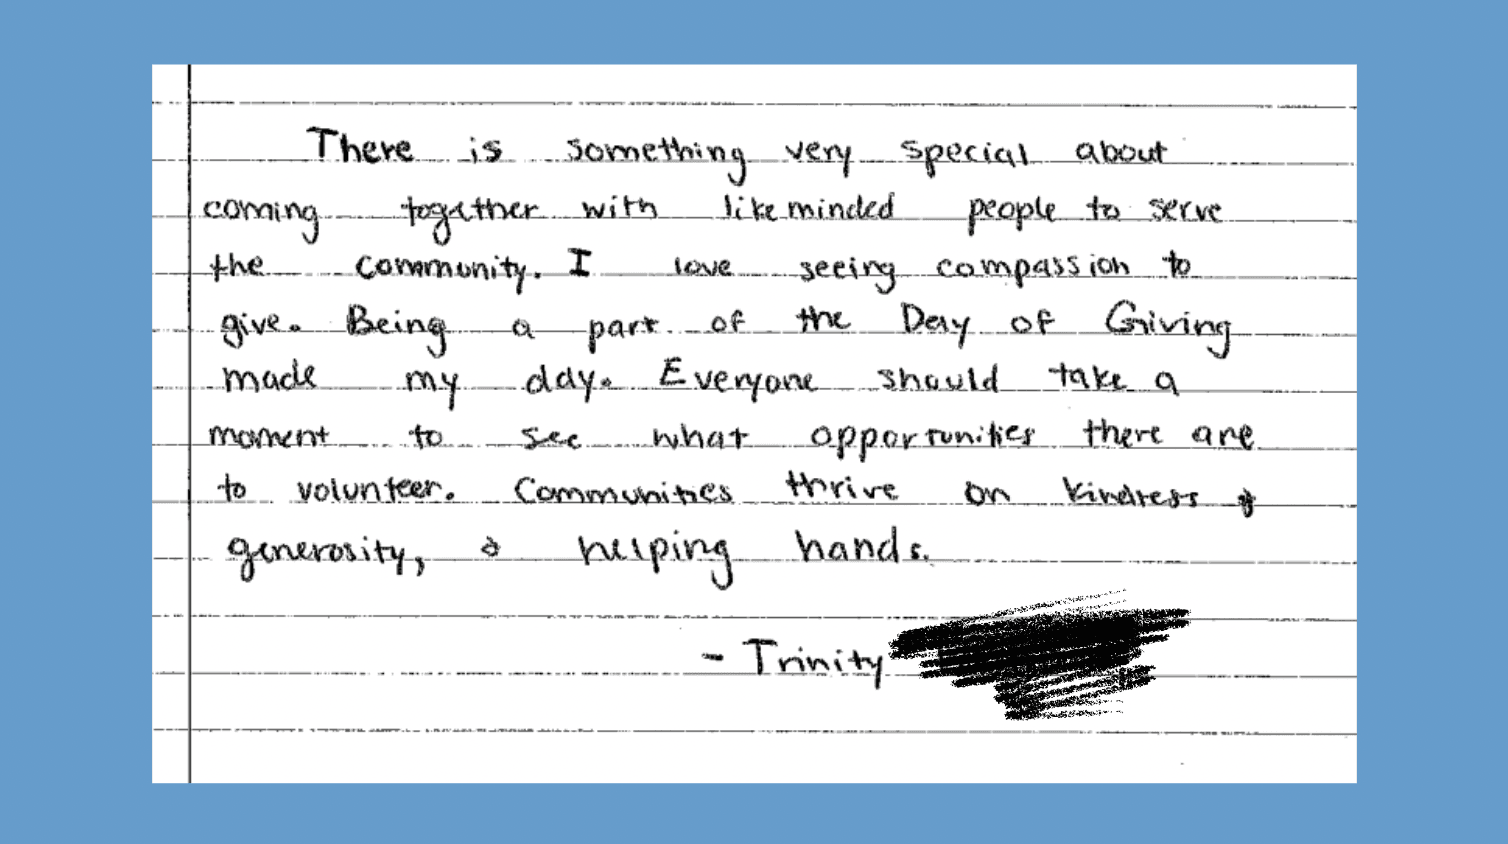 There is something very special about
coming together with likeminded people to serve
the community. I love seeing compassion to
give. Being a part of the Day of Giving
made my day. Everyone should take a
moment to see what opportunities there are
to volunteer. Communities thrive on kindness &
generosity, & helping hands.
- Trinity